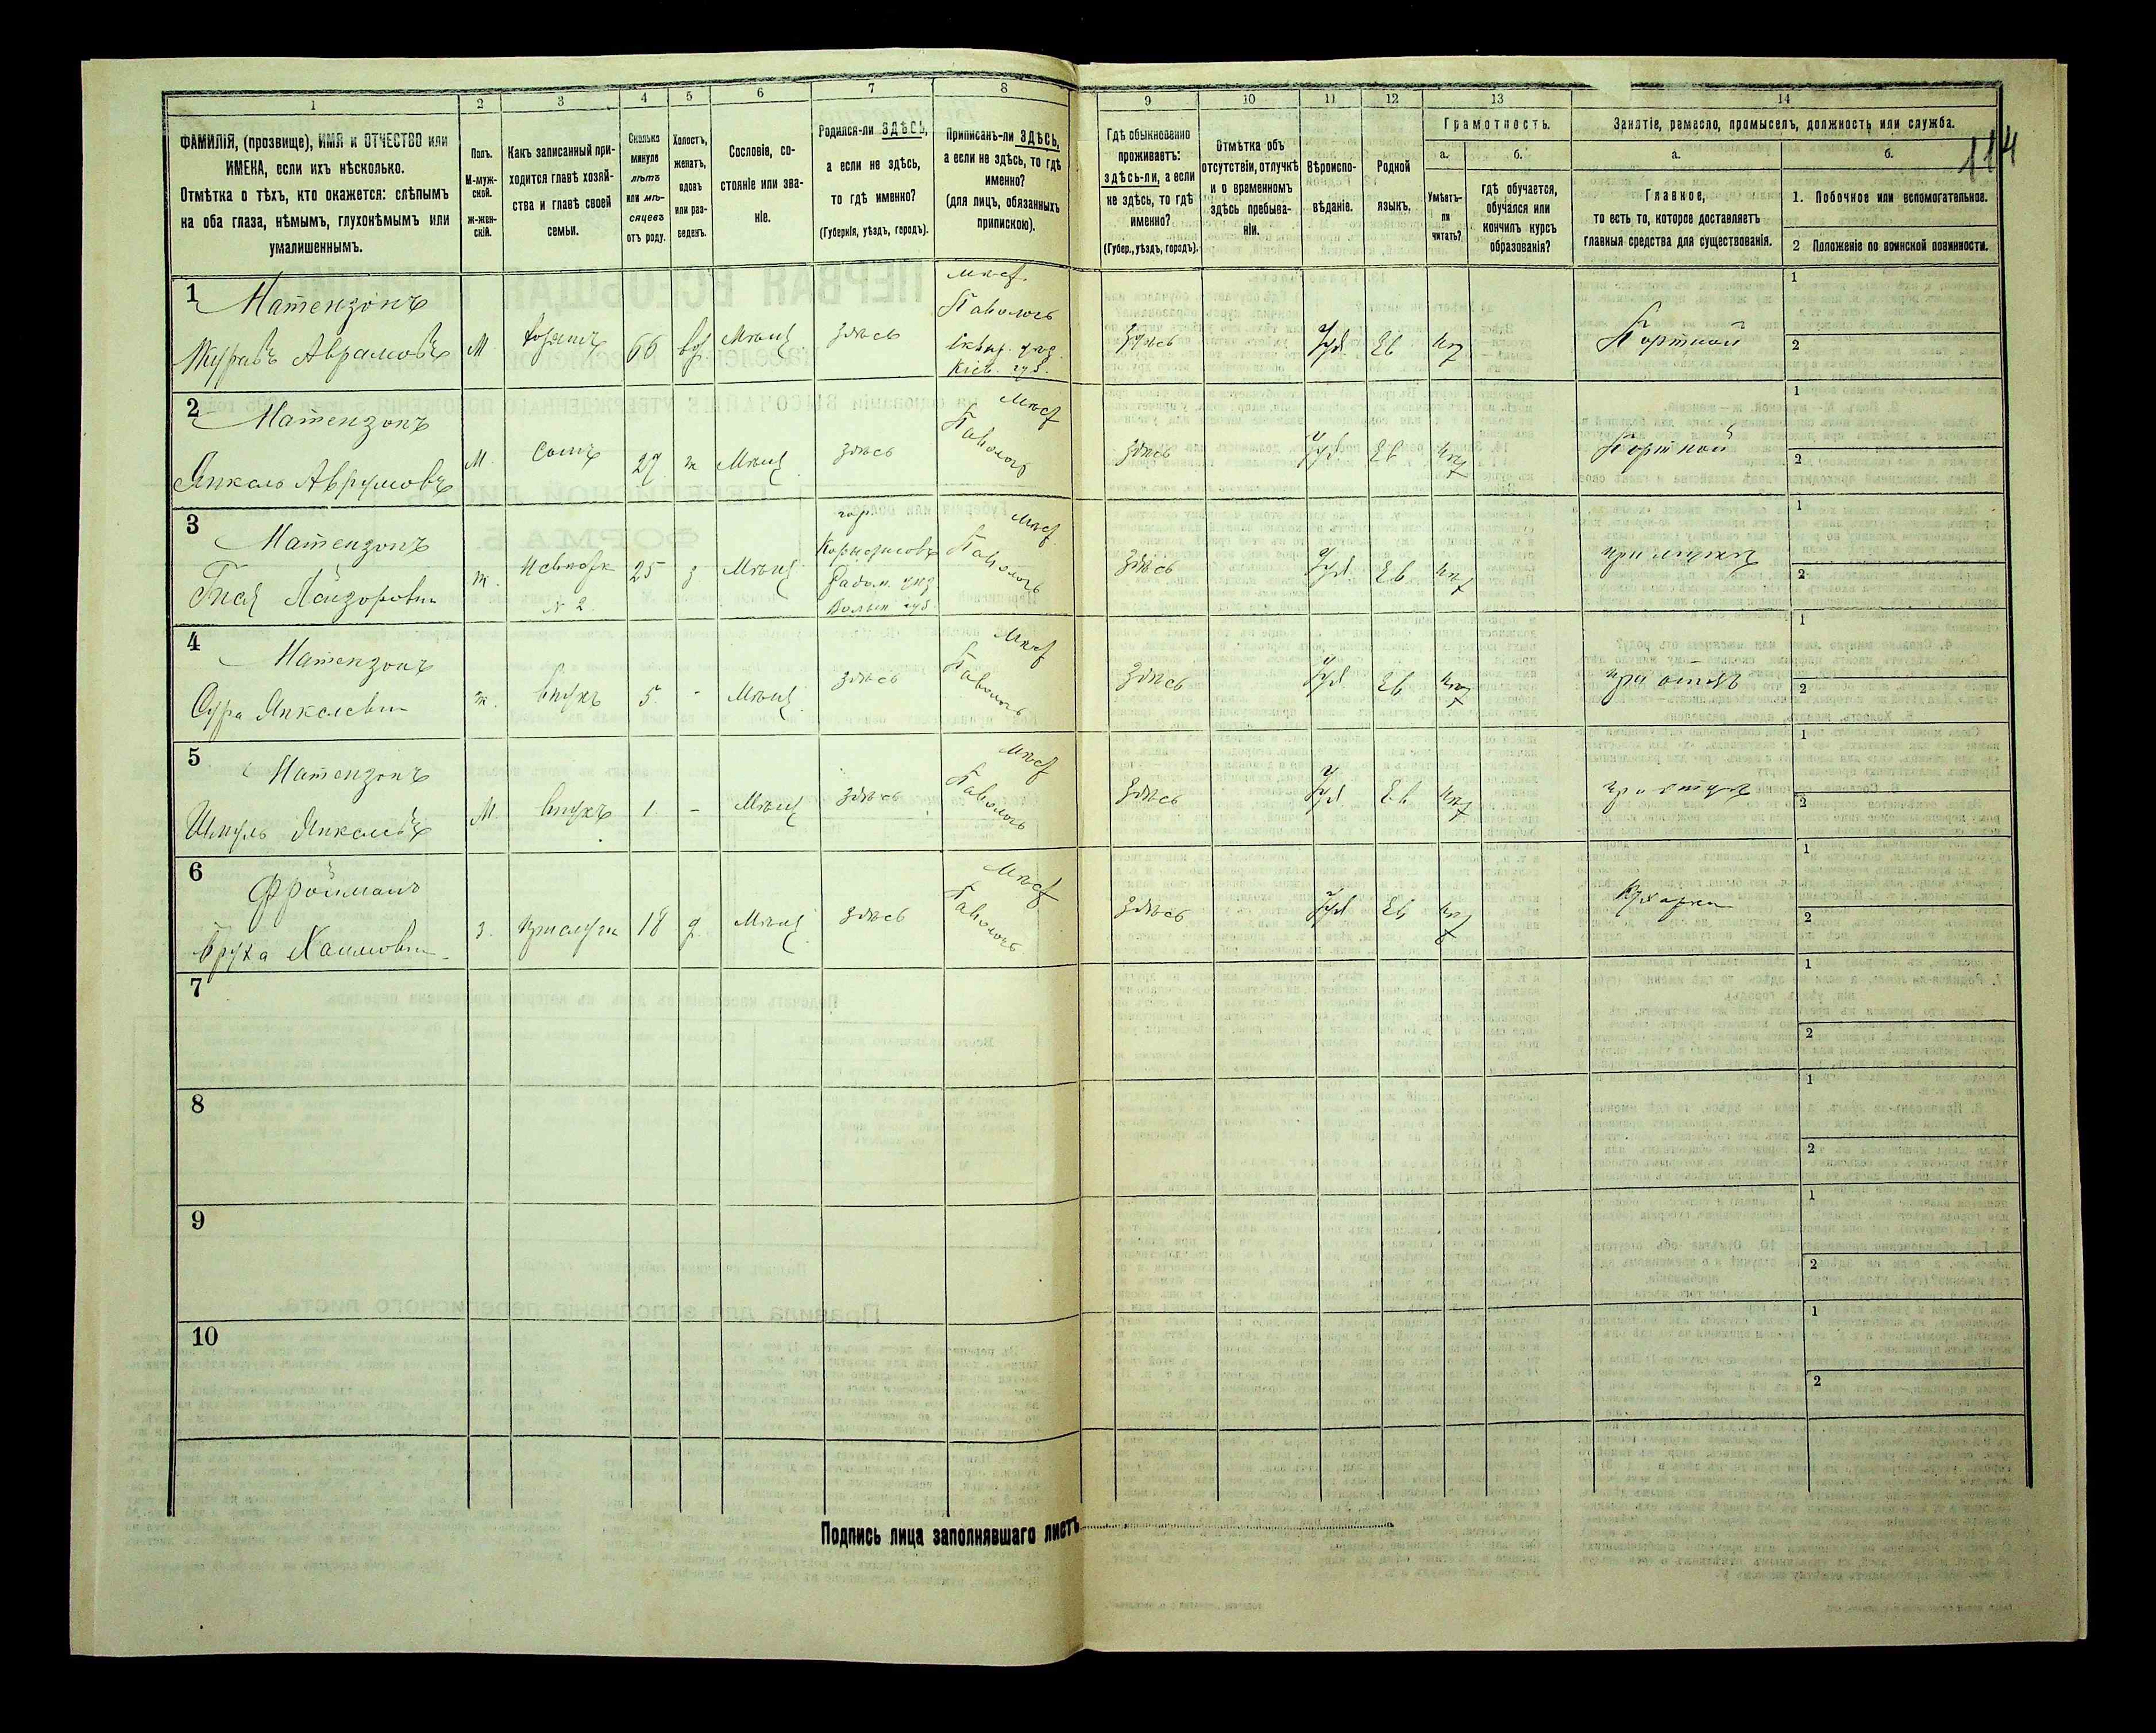 1
2
3
4
5
6
7
8
9
10
11
12
13
14
114
ФАМИЛІЯ, (прозвище), ИМЯ и ОТЧЕСТВО или
ИМЕНА, если ихъ нѣсколько.
Отмѣтка о тѣхъ, кто окажется: слѣпымъ
на оба глаза, нѣмымъ, глухонѣмымъ или
умалишеннымъ.
Полъ.
М-муж-
ской.
ж-жен-
скій.
Какъ записанный при-
ходится главѣ хозяй-
ства и главѣ своей
семьи.
Сколько
минуло
лѣтъ
или мѣ-
сяцевъ
отъ роду.
Холостъ,
женатъ,
вдовъ
или раз-
веденъ.
Сословіе, со-
стояніе или зва-
ніе.
Родился-ли ЗДѢСЬ,
а если не здѣсь,
то гдѣ именно?
(Губернія, уѣздъ, городъ).
Приписанъ-ли ЗДѢСЬ,
а если не здѣсь, то гдѣ
именно?
(для лицъ, обязанныхъ
припискою).
Гдѣ обыкновенно
проживаетъ:
здѣсь-ли, а если
не здѣсь, то гдѣ
именно?
(Губер., уѣздъ, городъ).
Отмѣтка объ
отсутствіи, отлучкѣ
и о временномъ
здѣсь пребыва-
ніи.
Вѣроиспо-
вѣданіе.
Родной
языкъ.
Грамотность.
а.
Умѣетъ-
ли
читать?
б.
гдѣ обучается,
обучался или
кончилъ курсъ
образованія?
Занятіе, ремесло, промыселъ, должность или служба.
а.
Главное,
то есть то, которое доставляетъ
главныя средства для существованія.
б.
1. Побочное или вспомогательное.
2 Положеніе по воинской повинности.
1
Натензонъ
Авромовъ
М
66
вд
Мѣщ
здѣсь
мѣст.
Паволочь
Сквир. уѣз.
Кіев. губ.
здѣсь
Іуд.
Ев
нѣт
Портной
1
2
2
Натензонъ
Янкель Аврумовъ
М.
сынъ
29
ж
Мѣщ
здѣсь
мѣст
Паволочь
здѣсь
Іуд
Ев
нѣт
Портной
1
2
3
Натензонъ
ж.
невѣстка
№ 2.
25
з
Мѣщ
гор
Радом. уѣз
мѣст
Паволочь
здѣсь
Іуд.
Ев
нѣт
при мужѣ
1
2
4
Натензонъ
Сура Янкелевна
ж.
5.
-
Мѣщ
здѣсь
мѣст
Паволочь
здѣсь
Іуд
Ев
нѣт
при отцѣ
1
2
5
Натензонъ
Шмуль Янкелевъ
М.
внукъ
1
-
Мѣщ
здѣсь
мѣст
Паволочь
здѣсь
Іуд.
Ев
нѣт
при отцѣ
1
2
6
Фройманъ
Бруха Хаимовна
прислуга
18
д.
Мѣщ
здѣсь
мѣст
Паволочь
здѣсь
Іуд
Ев
нѣт
Кухарка
1
2
7
1
2
8
1
2
9
1
2
10
1
2
Подпись лица заполнявшаго листъ